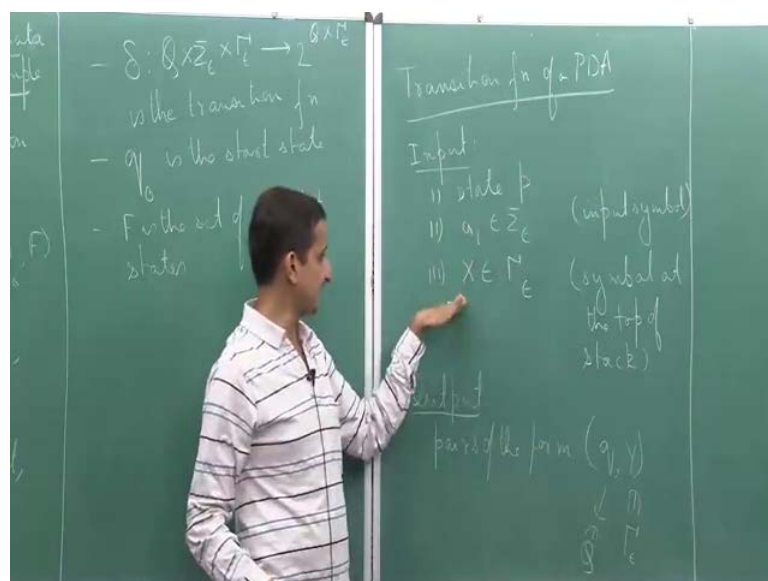 ple
on
, F)
- δ : Q × Σ_ε × Γ_ε → 2^{Q × Γ_ε}
is the transition fn
- q_0 is the start state
- F is the set of
states
Transition fn of a PDA
Input:
i) state p
ii) a_i ∈ Σ_ε (input symbol)
iii) X ∈ Γ_ε (symbol at
the top of
stack)
Output
pairs of the form (q, Y)
Q Γ_ε